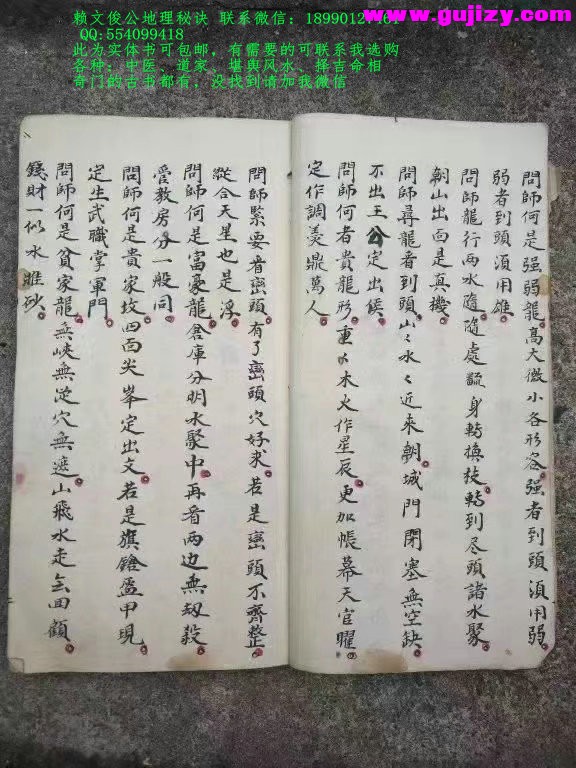 赖文俊公地理秘诀 联系微信：18990127461
QQ:554099418
此为实体书可包邮，有需要的可联系我选购
各种：中医、道家、堪舆风水、择吉命相
奇门的古书都有，没找到请加我微信
www.gujizy.com
問師何是强弱龍高大微小各形容强者到頭須用弱
弱者到頭須用雄
問師龍行兩水隨隨處翻身轉換技轉到尽頭諸水聚
朝山出面是真機
問師尋龍看到頭山々水々近來朝城門閉塞無空缺
不出王公定出侯
問師何者貴龍形重々木火作星辰更加帳幕天官曜
定作調羹鼎萬人
問師緊要看巒頭有了巒頭穴好求若是巒頭不齊整
縱合天星也是浮
問師何是富豪龍倉庫分明水聚中再看兩边無刼殺
愛教房分一般同
問師何是貴家坟四面尖峯定出文若是旗鎗盔甲現
定生武職掌軍門
問師何是貧家龍無峽無淀穴無遮山飛水走無回顧
錢財一似水雖砂